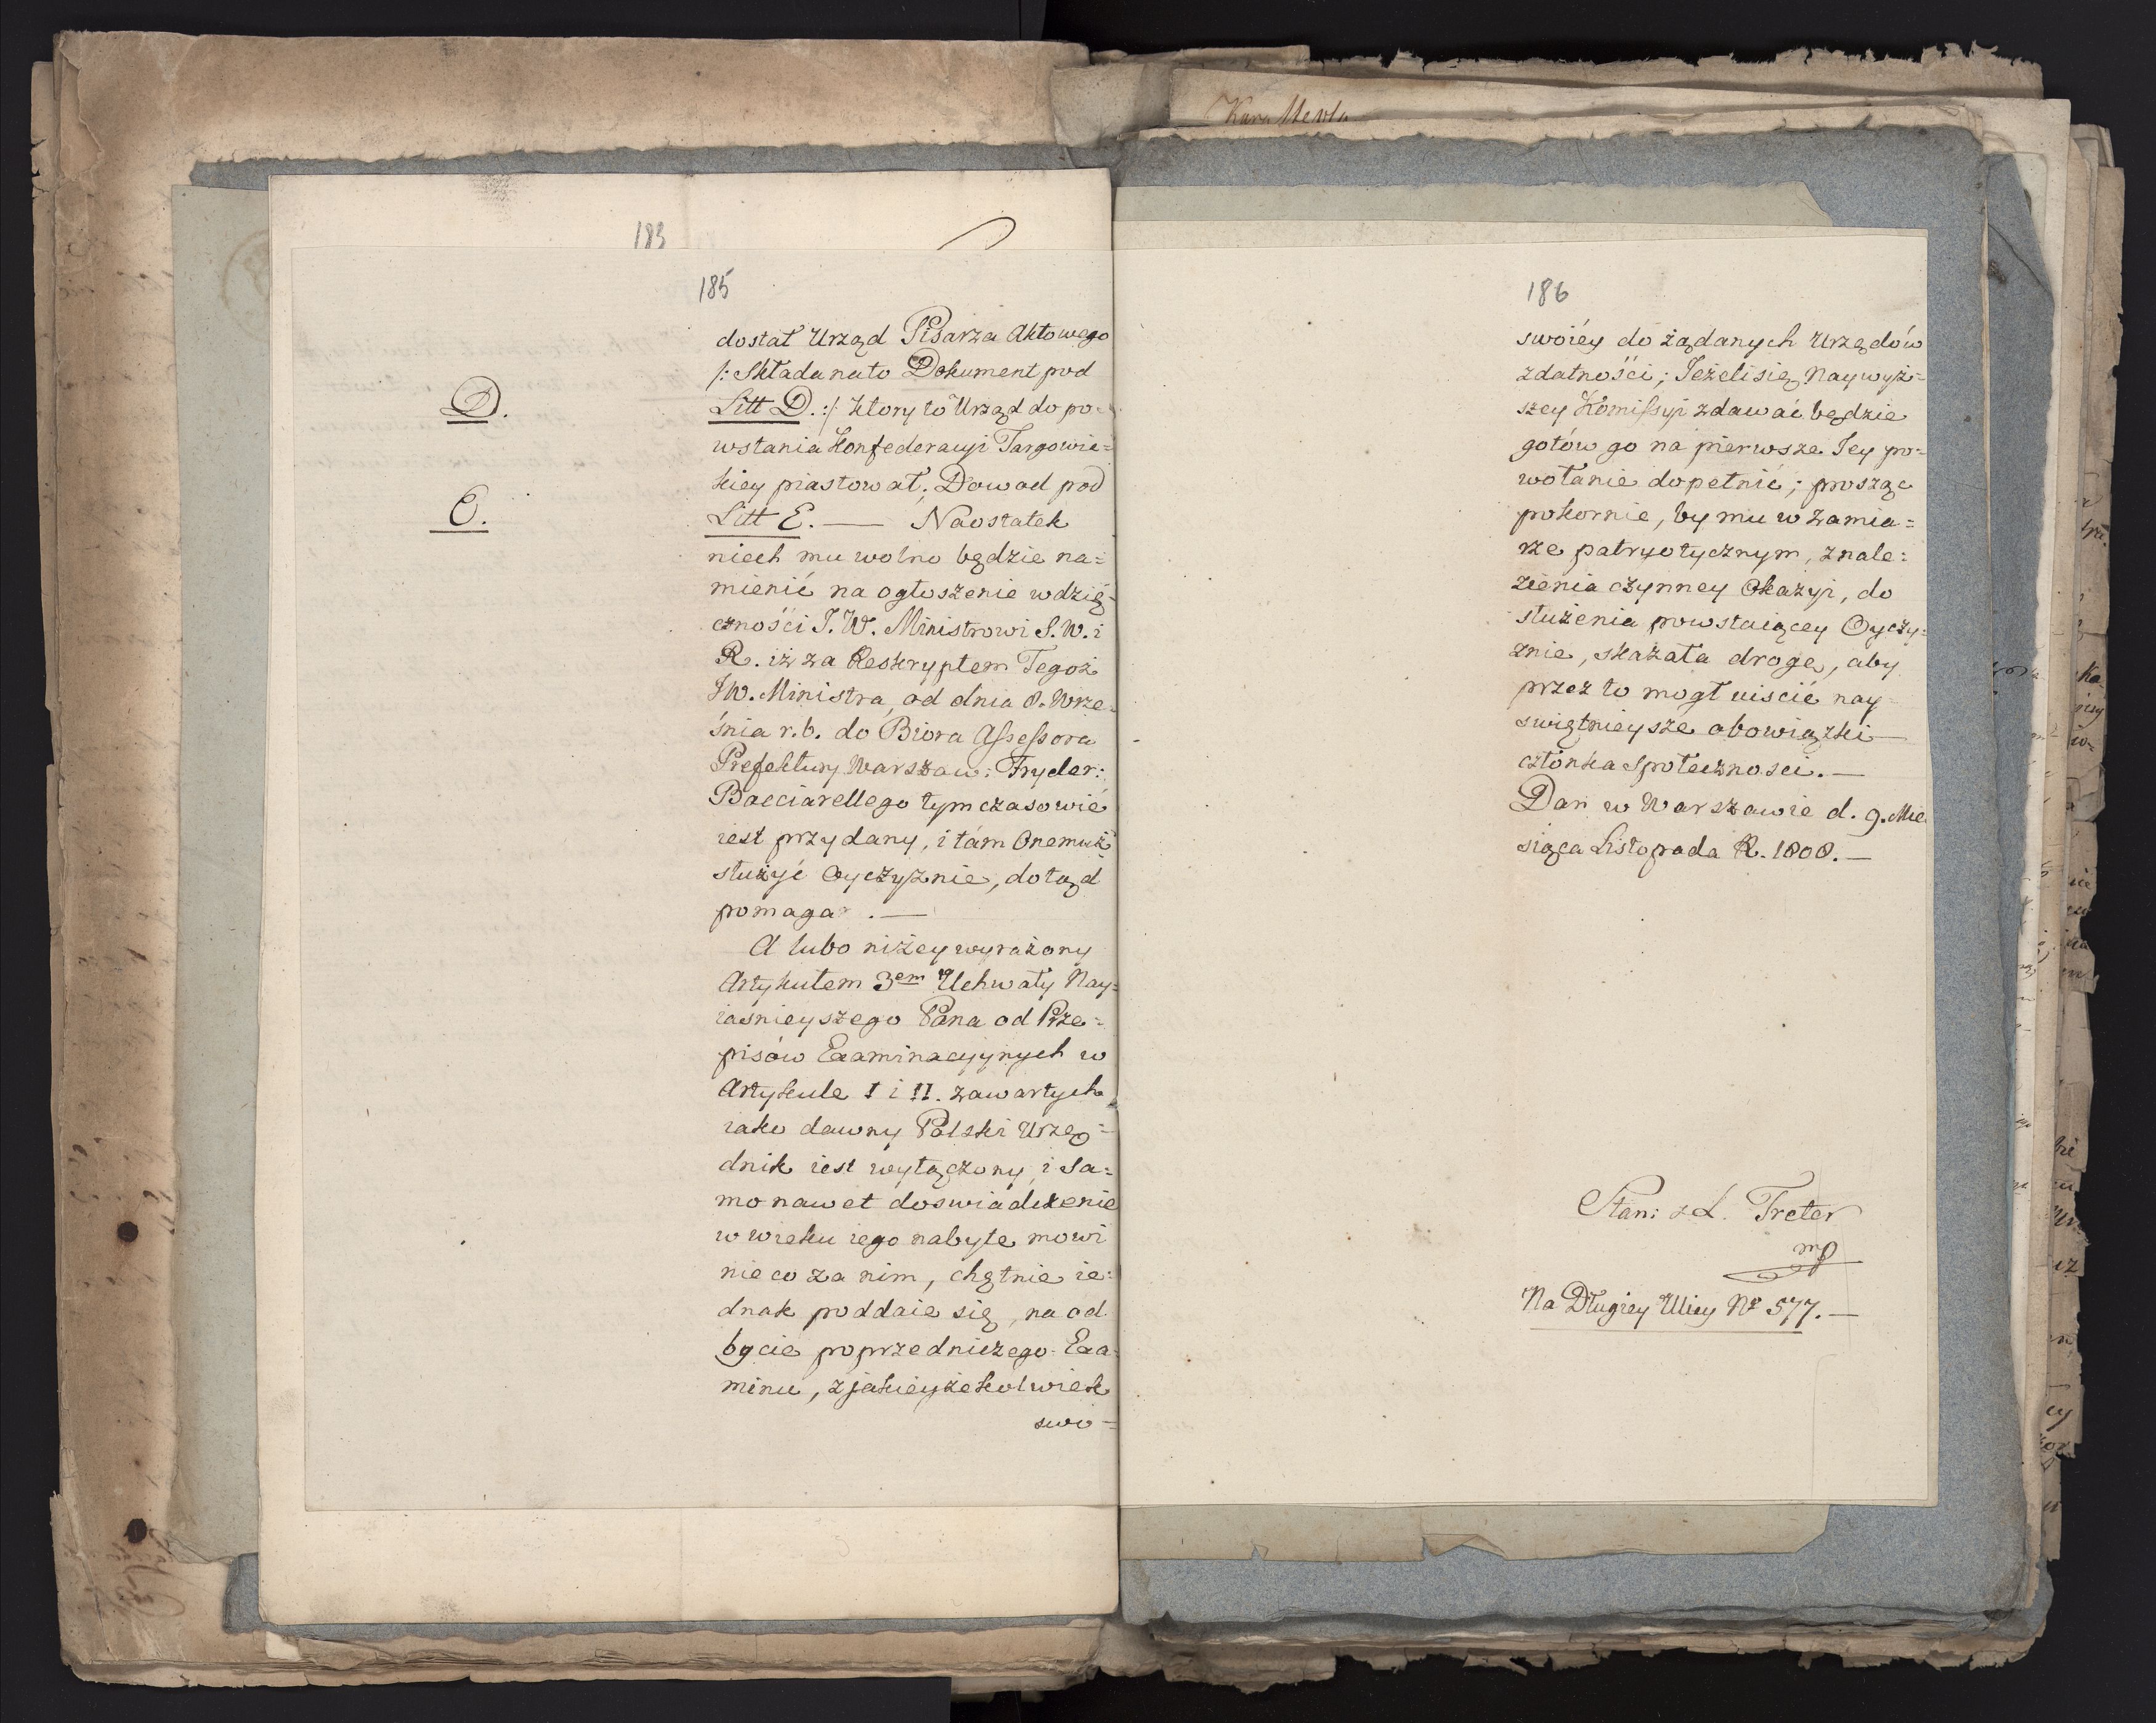 Kara
183
185
dostał Urząd Pisarza Aktowego
/: Składa na to Dokument pod
D.
Litt D. :/ Ktory to Urząd do po=
wstania Konfederacyi Targowic=
kiey piastował; Dowod pod
E.
Litt E. — Naostatek
niech mu wolno będzie na=
mienić na ogłoszenie wdzię=
czności J. W. Ministrowi S. W. i
R. iż za Reskryptem Tegoż
JW. Ministra, od dnia 8. Wrze=
śnia r. b. do Biora Assessora
Prefektury Warszaw: Fryder:
Bacciarellego tymczasowie
iest przydany, i tám Onemuż
służyć Oyczyznie, dotąd
pomaga. —
A lubo niżey wyrażony
Artykułem 3em Uchwały Nay=
iaśnieyszego Pana od Prze=
pisów Examinacyynych w
Artykule I i II. zawartych
iako dawny Polski Urzę=
dnik iest wyłączony, i Sa=
mo nawet doswiadczenie
w wieku iego nabyte mowi
nieco za nim, chętnie ie=
dnak poddaie się, na od
bycie poprzedniczego Exa=
minu, z jakieyżekolwiek
swo=
186
swoiéy do żądanych Urzędów
zdatności; Jeżeli się Naywyż=
szey Kómissyi zdawać będzie
gotów go na pierwsze Jey po=
wołanie dopełnić; prosząc
pokornie, by mu w zamia=
rze patryotycznym, znale=
zienia czynney Okazyi, do
służenia powstaiącey Oyczy=
znie, skazała drogę, aby
przez to mogł uiscić nay=
swiętnieysze obowiązki —
członka Społeczności. —
Dan w Warszawie d. 9. Mie=
siąca Listopada R. 1808. —
Stan: z L. Treter
mp
Na Długiey Ulicy Nº 577. —